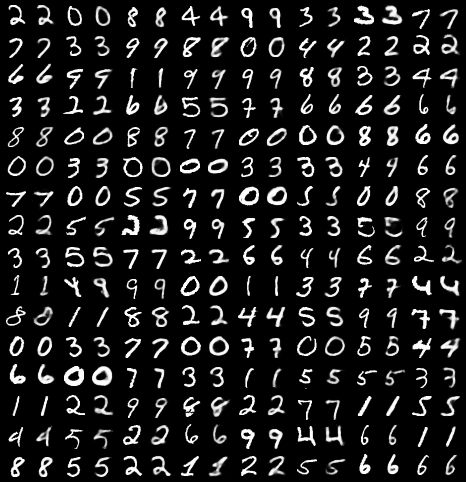 2 2 0 0 8 8 4 4 9 9 3 3 3 3 7 7
7 7 3 3 9 9 8 8 0 0 4 4 2 2 2 2
6 6 9 9 1 1 9 9 9 9 8 8 3 3 4 4
3 3 2 2 6 6 5 5 7 7 6 6 6 6 6 6
8 8 0 0 8 8 7 7 0 0 0 0 8 8 6 6
0 0 3 3 0 0 0 0 3 3 3 3 4 9 6 6
7 7 0 0 5 5 7 7 0 0 5 5 0 0 8 8
2 2 5 5 2 2 9 9 5 5 3 3 5 5 9 9
3 3 5 5 7 7 2 2 6 6 4 4 6 6 2 2
1 1 9 9 9 0 0 1 1 3 3 7 7 4 4
8 8 1 1 8 8 2 2 4 4 5 5 9 9 7 7
0 0 3 3 7 7 0 0 7 7 0 0 5 5 4 4
6 6 0 0 7 7 3 3 1 1 5 5 5 5 3 3
1 1 2 2 9 9 8 8 2 2 7 7 1 1 5 5
4 4 5 5 2 2 6 6 9 9 4 4 6 6 1 1
8 8 5 5 2 2 1 1 2 2 5 5 6 6 6 6